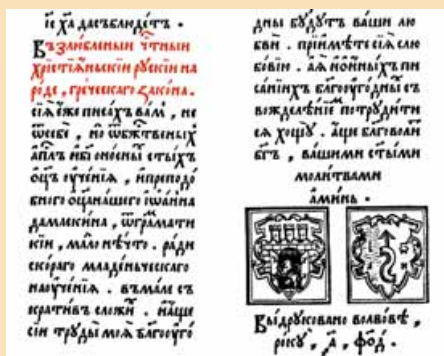 іс҃ ха҃ дасъблюдетъ .
Възлюбленыи чт҃ныи
хрс̑тїѧньскїи рускїи на
роде , греческаго закона .
сїѧ є́же писахъ вам̾ , не
ѿсебе , но ѿбж҃твеныхъ
апл҃ъ и҆бг҃оносныⷯ ст҃ыхъ
оц҃ъ ᲂу҆че́нїѧ , и҆преподо
бного оц҃анашего і҆ѡан́на
дамаскина , ѿграⷨмати
кїи , мало нѣ́что . ради
скораго младе́нческаго
наᲂуче́нїѧ . въмале съ
кратив̾ сложиⷯ . и҆аще
сїи труды моѧ̀ бл҃гоᲂуго
дны бꙋдꙋтъ ваши лю
бви . прїимѣте сїѧ слю
бовїю . а҆ѧ̀ и҆о҆и҆ныхъ пи
санїиⷯ бл҃гоᲂуго́дныⷯ съ
вожделѣ́нїеⷨ потрꙋдити
сѧ хощꙋ . а҆ще бл҃говоли́т
бг҃ъ , вашими ст҃ыми
молитвами
а҆минь .
Выдрꙋковано волвовѣ ,
рокꙋ , ҂а҃ , фо҃д .